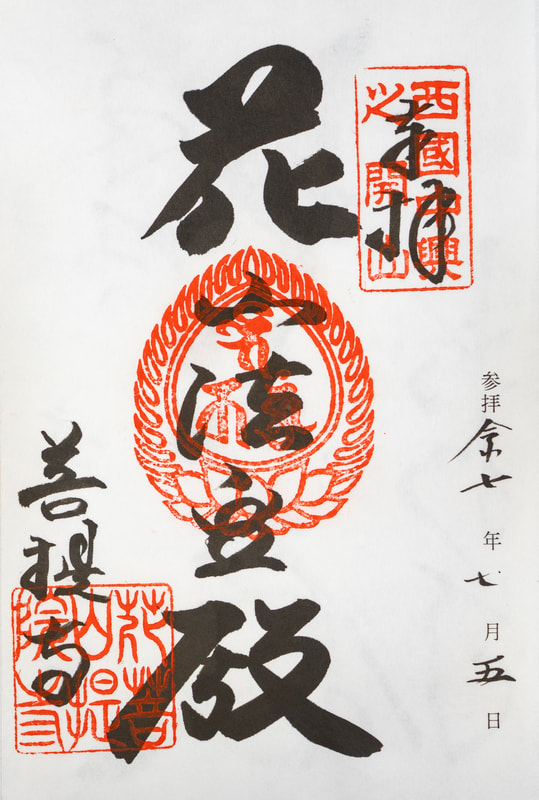 奉拝
西國中興
之開山
参拝 令七年七月五日
花山法皇殿
菩提寺
花山院
菩提寺